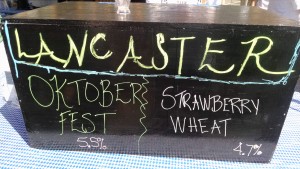 LANCASTER
OKTOBER
FEST
5.5%
STRAWBERRY
WHEAT
4.7%